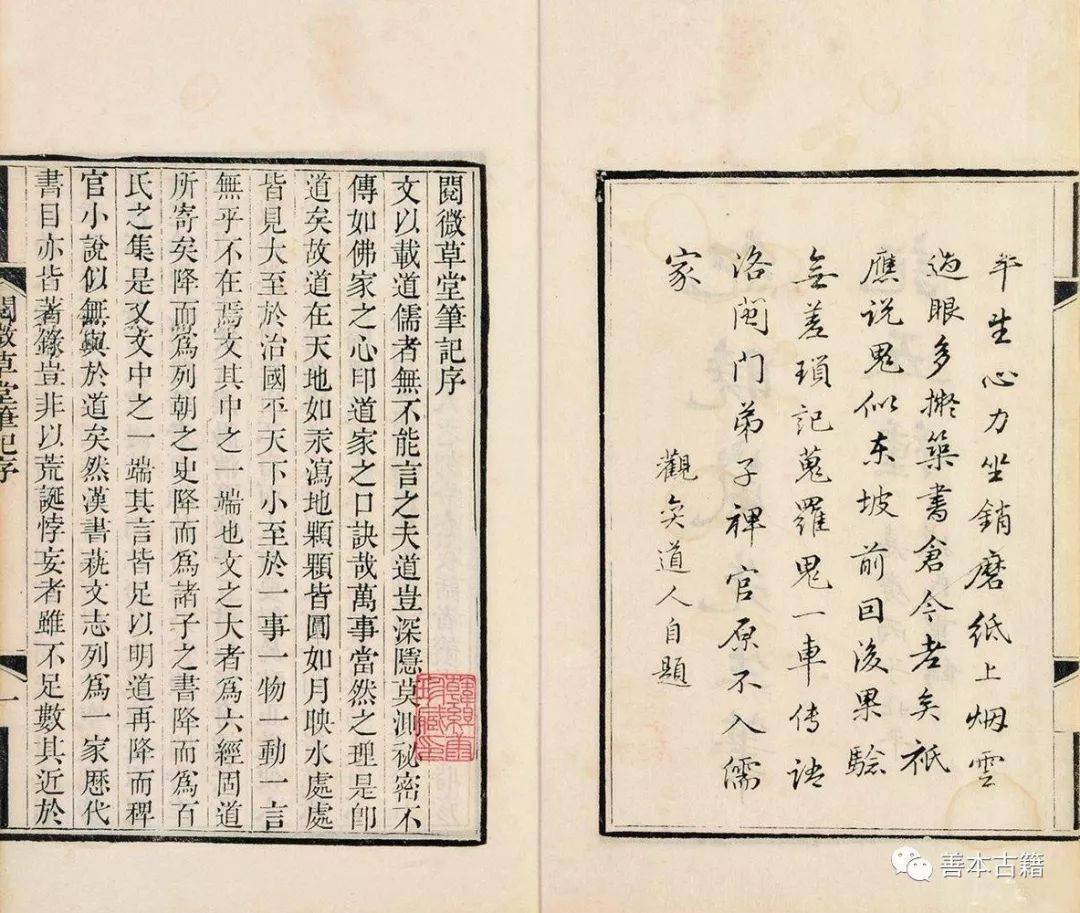 平生心力坐銷磨紙上烟雲
過眼多擬築書倉今老矣祇
應说鬼似东坡前囙後果驗
無差瑣記蒐羅鬼一車传語
洛閩门弟子稗官原不入儒
家
觀奕道人自題
閱微草堂筆記序
文以載道儒者無不能言之夫道豈深隱莫測祕密不
傳如佛家之心印道家之口訣哉萬事當然之理是卽
道矣故道在天地如汞瀉地顆顆皆圓如月映水處處
皆見大至於治國平天下小至於一事一物一動一言
無乎不在焉文其中之一端也文之大者爲六經固道
所寄矣降而爲列朝之史降而爲諸子之書降而爲百
氏之集是又文中之一端其言皆足以明道再降而稗
官小說似無與於道矣然漢書蓺文志列爲一家歷代
書目亦皆著錄豈非以荒誕悖妄者雖不足數其近於
閱微草堂筆記序
一
珍藏印
善本古籍